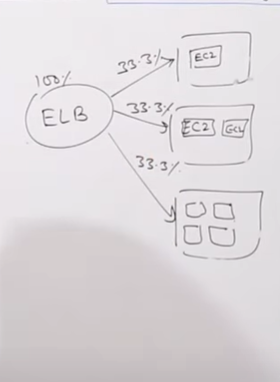 100%
ELB
33.3%
EC2
33.3%
EC2
33.3%